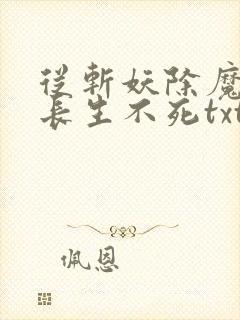 從斬妖除魔
長生不死txt
佩恩